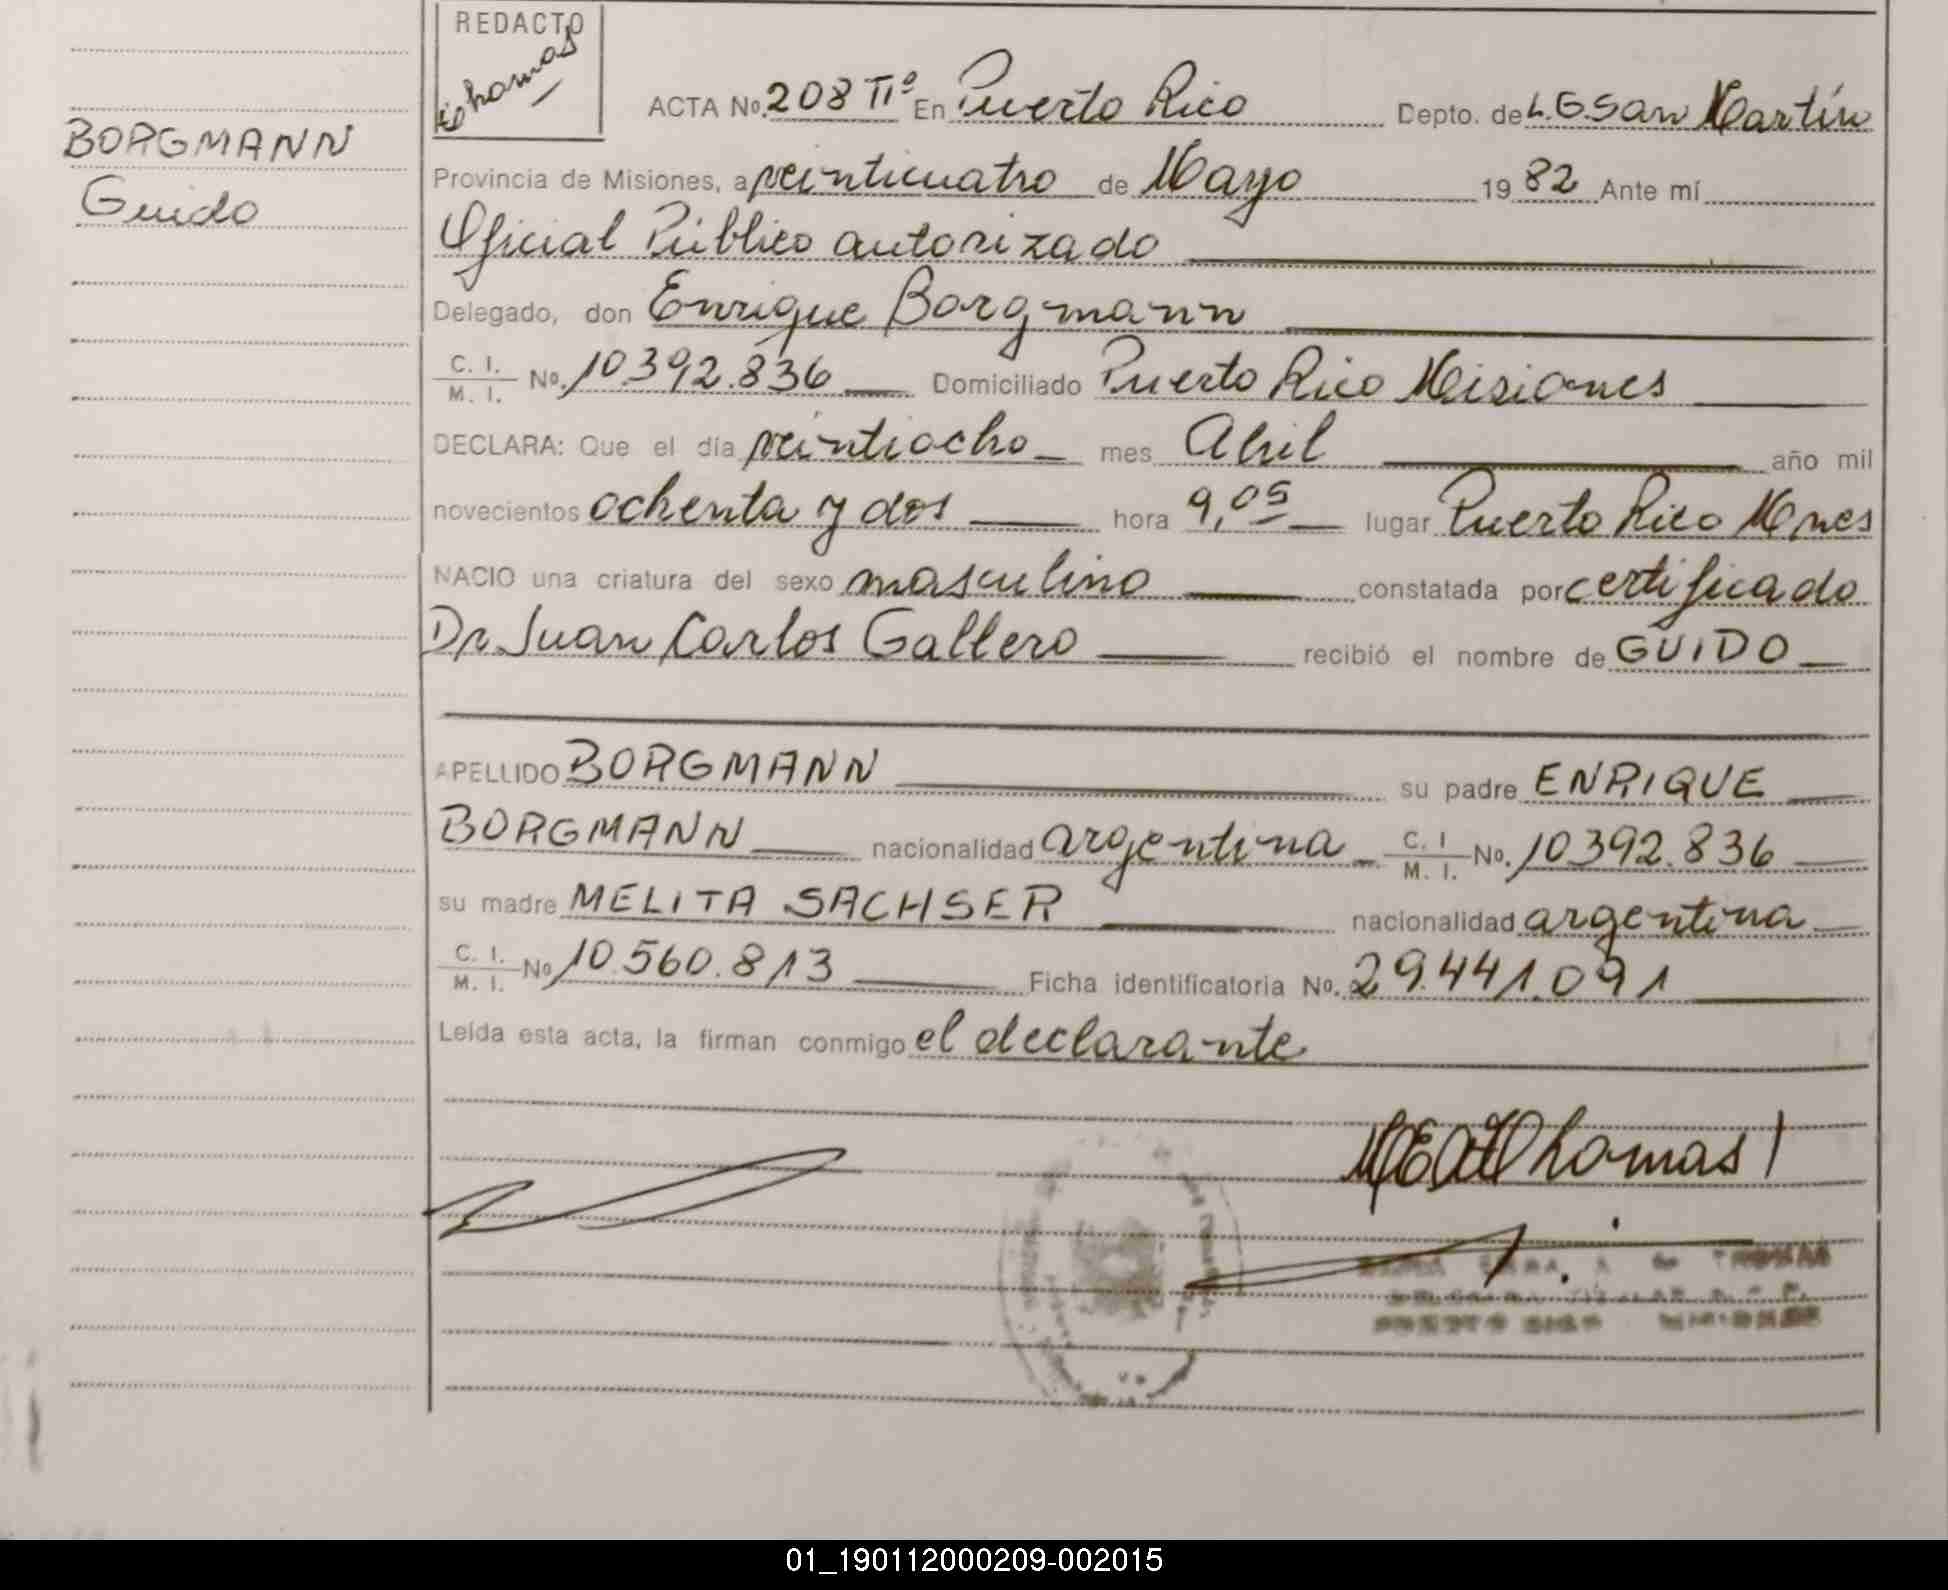 REDACTO
Thomas
BORGMANN
Guido
ACTA No. 208 IIº En Puerto Rico Depto. de L.G.San Martín
Provincia de Misiones, a veinticuatro de Mayo 19 82 Ante mí
Oficial Público autorizado
Delegado, don Enrique Borgmann
C. I. / M. I. No. 10.392.836 Domiciliado Puerto Rico Misiones
DECLARA: Que el día veintiocho mes Abril año mil
novecientos ochenta y dos hora 9,05 lugar Puerto Rico Mnes
NACIO una criatura del sexo masculino constatada por certificado
Dr. Juan Carlos Gallero recibió el nombre de GUIDO
APELLIDO BORGMANN su padre ENRIQUE
BORGMANN nacionalidad argentina C. I / M. I. No. 10392.836
su madre MELITA SACHSER nacionalidad argentina
C. I. / M. I. No 10.560.813 Ficha identificatoria No. 29.441.091
Leída esta acta, la firman conmigo el declarante
Thomas
THOMAS
PUERTO RICO MISIONES
01_190112000209-002015